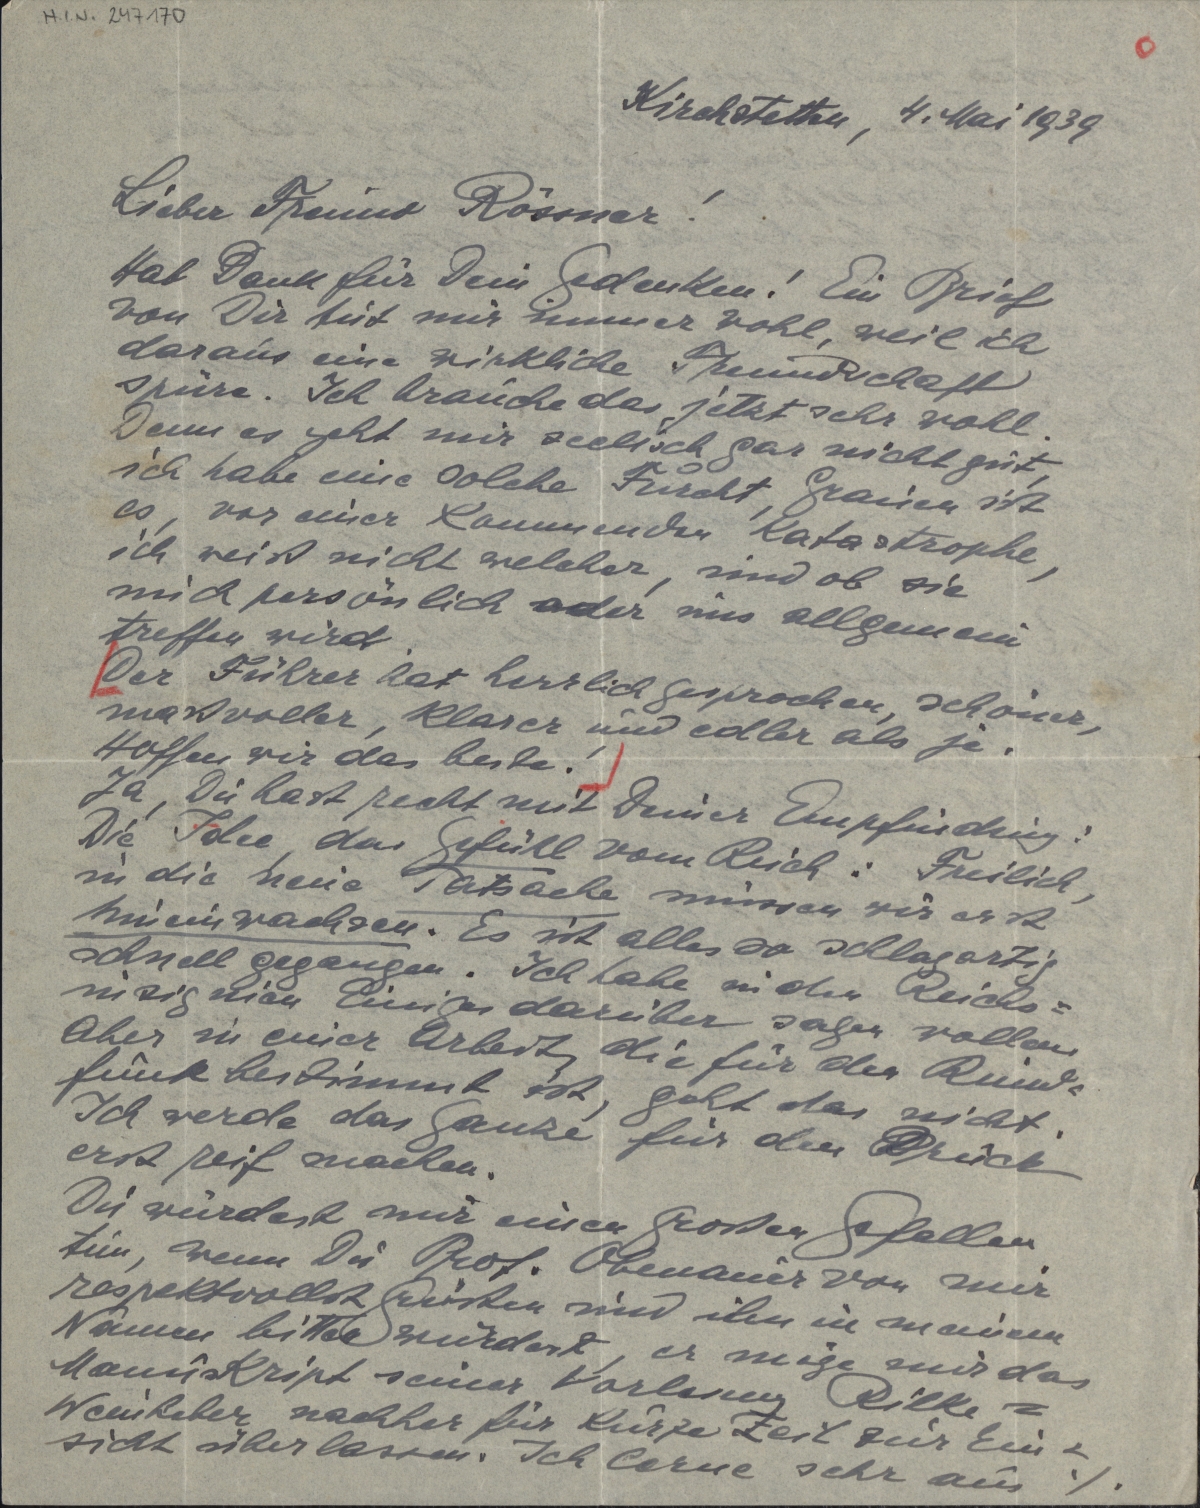 H.I.N. 247.170
Kirchstetten, 4. Mai 1939
Lieber Freund Rössner!
Hab Dank für Dein Gedenken! Ein Brief
von Dir tut mir immer wohl, weil ich
daraus eine wirkliche Freundschaft
spüre. Ich brauche das jetzt sehr wohl.
Denn es geht mir seelisch gar nicht gut,
ich habe eine solche Furcht, Grauen ist
es, vor einer kommenden Katastrophe,
ich weiß nicht welcher, und ob sie
mich persönlich oder uns allgemein
treffen wird.
Der Führer hat herrlich gesprochen, schöner,
maßvoller, klarer und edler als je.
Hoffen wir das beste!
Ja, Du hast recht mit Deiner Empfindung:
Die Idee, das Gefühl vom Reich: Freilich,
in die neue Tatsache müssen wir erst
hineinwachsen. Es ist alles so schlagartig
schnell gegangen. Ich habe in den Reichs=
insignien Einiges darüber sagen wollen
Aber in einer Arbeit, die für den Rund=
funk bestimmt ist, geht das nicht.
Ich werde das Ganze für den Druck
erst reif machen.
Du würdest mir einen großen Gefallen
tun, wenn Du Prof. Obenauer von mir
respektvollst grüßen und ihn in meinem
Namen bitten würdest, er möge mir das
Manuskript seiner Vorlesung Rilke =
Weinheber nachher für kurze Zeit zur Ein=
sicht überlassen. Ich lerne sehr aus ./.